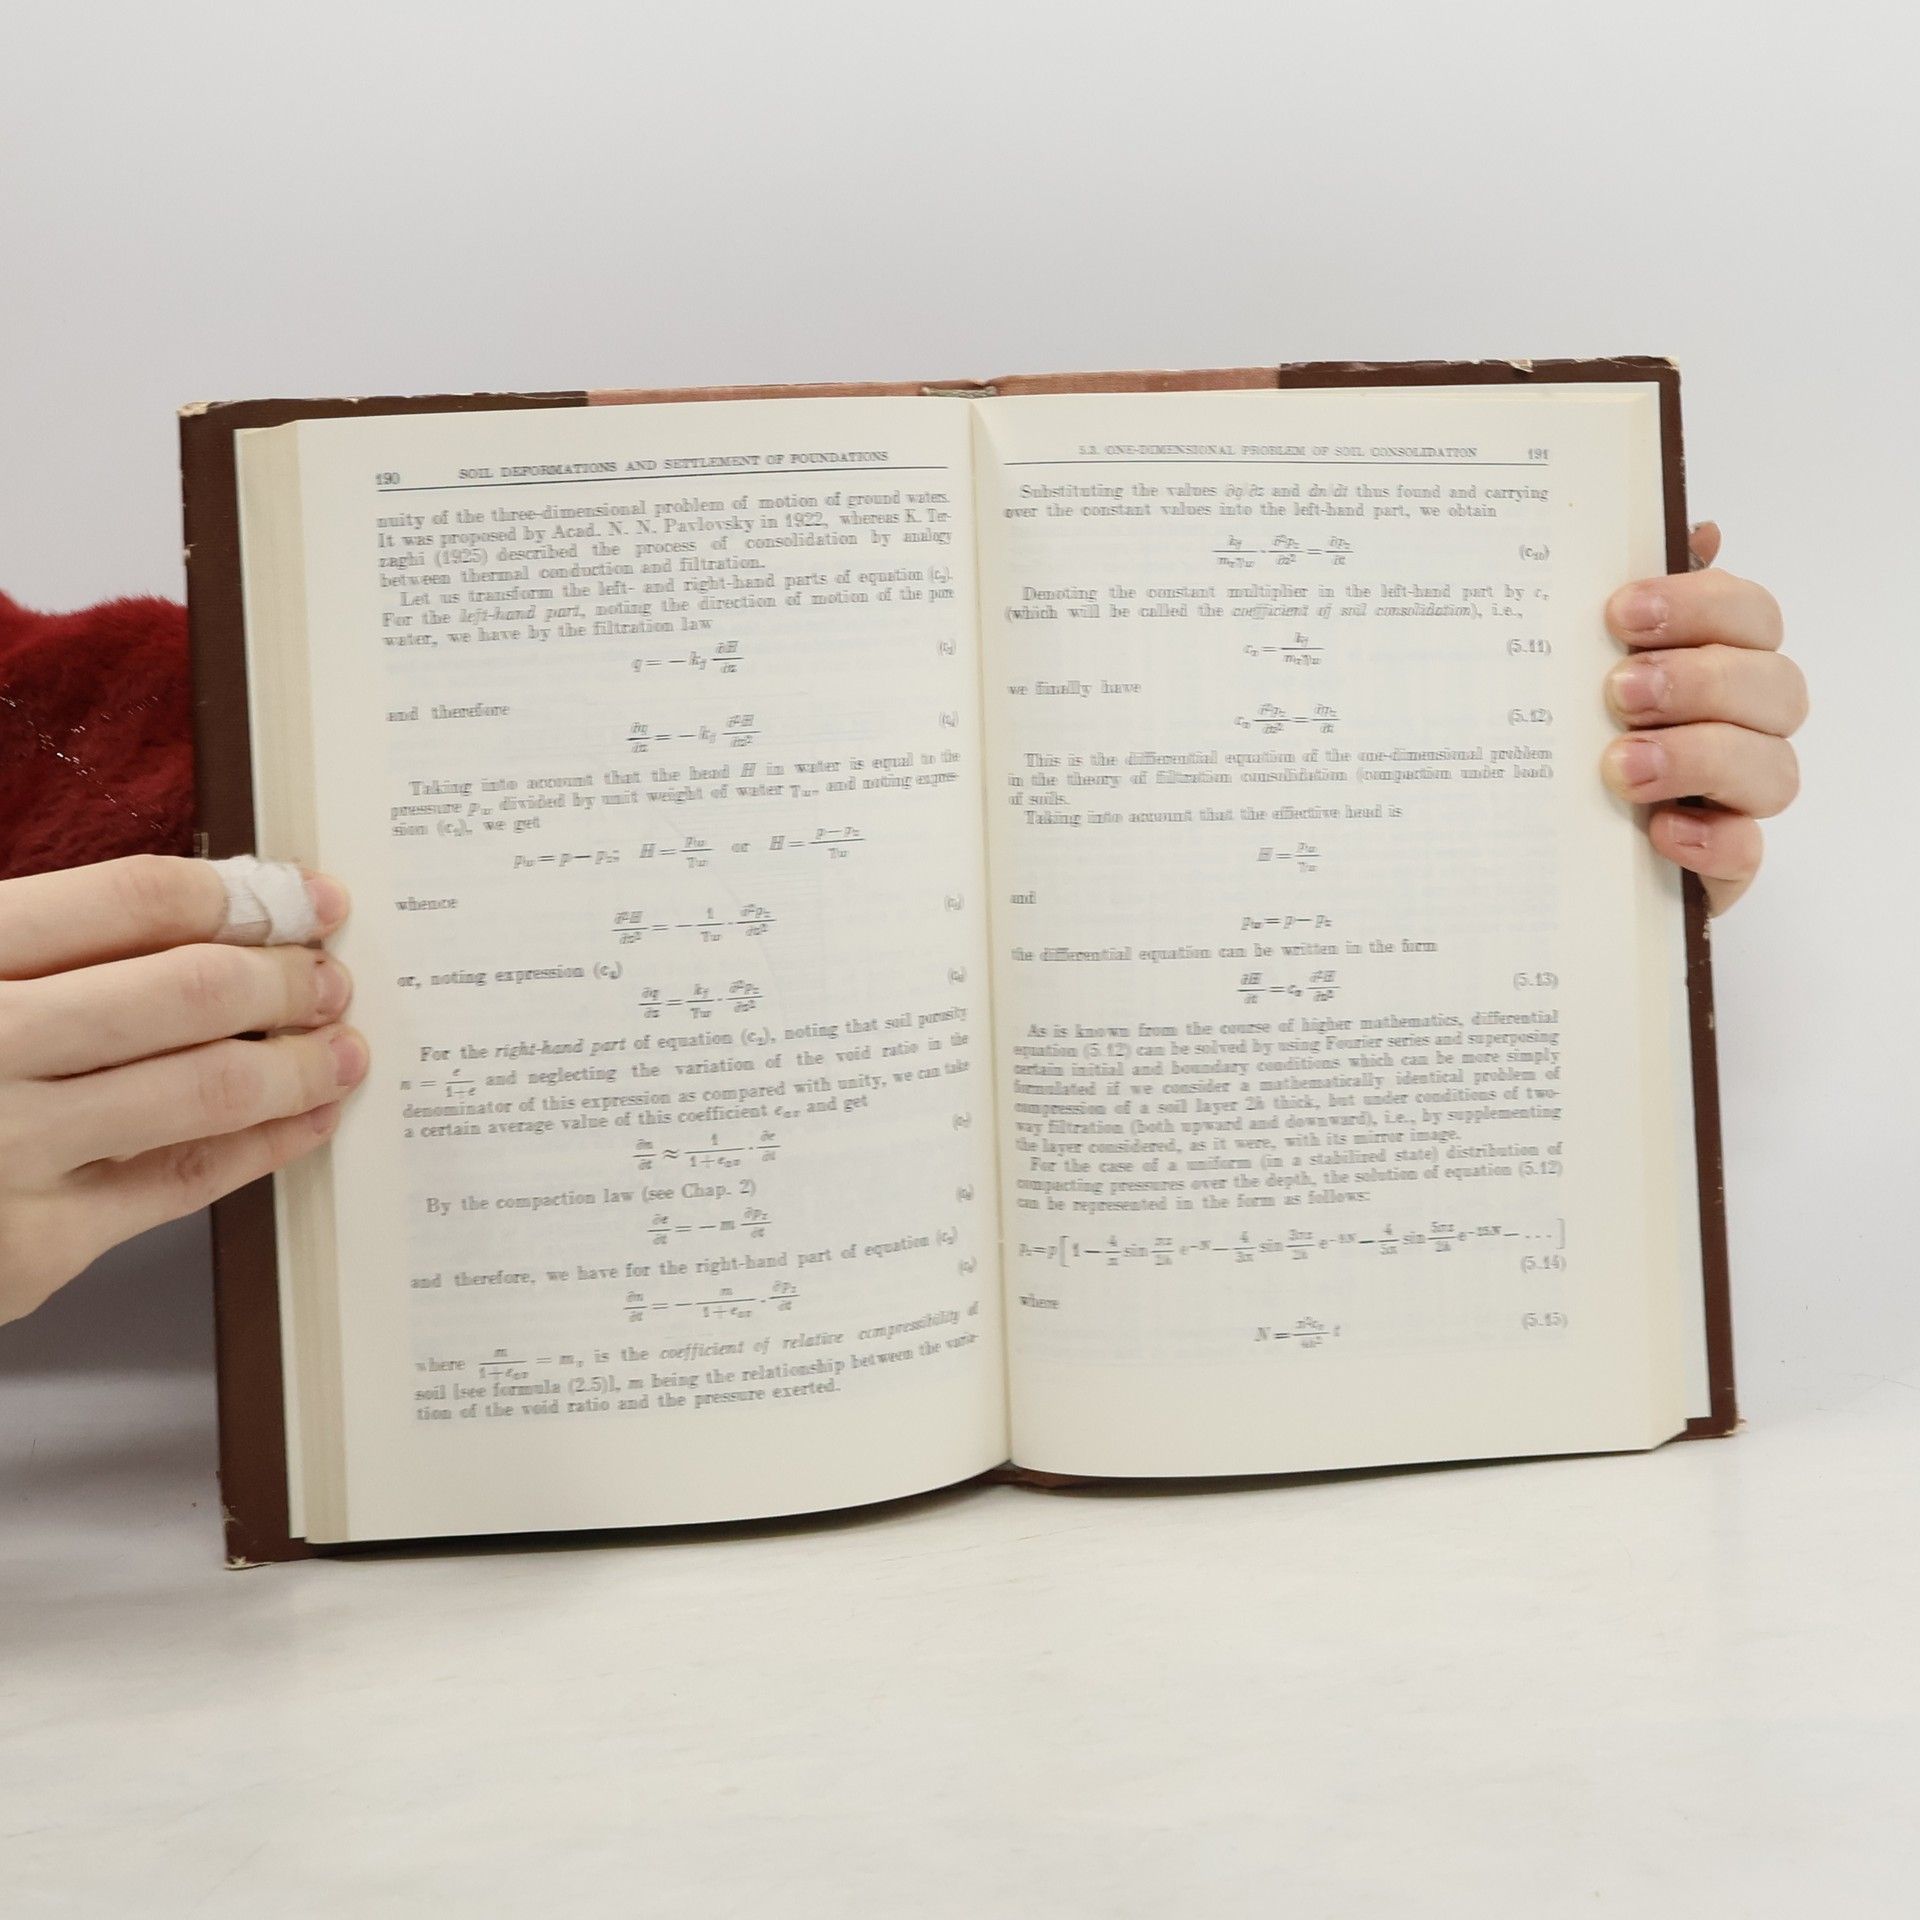 190 SOIL DEFORMATIONS AND SETTLEMENT OF FOUNDATIONS
nuity of the three-dimensional problem of motion of ground waters.
It was proposed by Acad. N. N. Pavlovsky in 1922, whereas K. Ter-
zaghi (1925) described the process of consolidation by analogy
between thermal conduction and filtration.
Let us transform the left- and right-hand parts of equation (c₂).
For the left-hand part, noting the direction of motion of the pore
water, we have by the filtration law
q = −k_f ∂H/∂z (c₃)
and therefore
∂q/∂z = −k_f ∂²H/∂z² (c₄)
Taking into account that the head H in water is equal to the
pressure p_w divided by unit weight of water γ_w, and noting expres-
sion (c₁), we get
p_w = p − p_z; H = p_w/γ_w or H = (p − p_z)/γ_w
whence
∂²H/∂z² = −1/γ_w · ∂²p_z/∂z² (c₅)
or, noting expression (c₄)
∂q/∂z = k_f/γ_w · ∂²p_z/∂z² (c₆)
For the right-hand part of equation (c₂), noting that soil porosity
n = e/(1+e) and neglecting the variation of the void ratio in the
denominator of this expression as compared with unity, we can take
a certain average value of this coefficient e_av and get
∂n/∂t ≈ 1/(1+e_av) · ∂e/∂t (c₇)
By the compaction law (see Chap. 2)
∂e/∂t = −m ∂p_z/∂t (c₈)
and therefore, we have for the right-hand part of equation (c₂)
∂n/∂t = −m/(1+e_av) · ∂p_z/∂t (c₉)
where m/(1+e_av) = m_v is the coefficient of relative compressibility of
soil [see formula (2.5)], m being the relationship between the varia-
tion of the void ratio and the pressure exerted.
5.3. ONE-DIMENSIONAL PROBLEM OF SOIL CONSOLIDATION 191
Substituting the values ∂q/∂z and dn/dt thus found and carrying
over the constant values into the left-hand part, we obtain
k_f/(m_vγ_w) · ∂²p_z/∂z² = ∂p_z/∂t (c₁₀)
Denoting the constant multiplier in the left-hand part by c_v
(which will be called the coefficient of soil consolidation), i.e.,
c_v = k_f/(m_vγ_w) (5.11)
we finally have
c_v ∂²p_z/∂z² = ∂p_z/∂t (5.12)
This is the differential equation of the one-dimensional problem
in the theory of filtration consolidation (compaction under load)
of soils.
Taking into account that the effective head is
H = p_w/γ_w
and
p_w = p − p_z
the differential equation can be written in the form
∂H/∂t = c_v ∂²H/∂z² (5.13)
As is known from the course of higher mathematics, differential
equation (5.12) can be solved by using Fourier series and superposing
certain initial and boundary conditions which can be more simply
formulated if we consider a mathematically identical problem of
compression of a soil layer 2h thick, but under conditions of two-
way filtration (both upward and downward), i.e., by supplementing
the layer considered, as it were, with its mirror image.
For the case of a uniform (in a stabilized state) distribution of
compacting pressures over the depth, the solution of equation (5.12)
can be represented in the form as follows:
p_z=p[1−4/π sin πz/2h e^−N − 4/3π sin 3πz/2h e^−9N − 4/5π sin 5πz/2h e^−25N − ...]
(5.14)
where
N = π²c_v/4h² t (5.15)